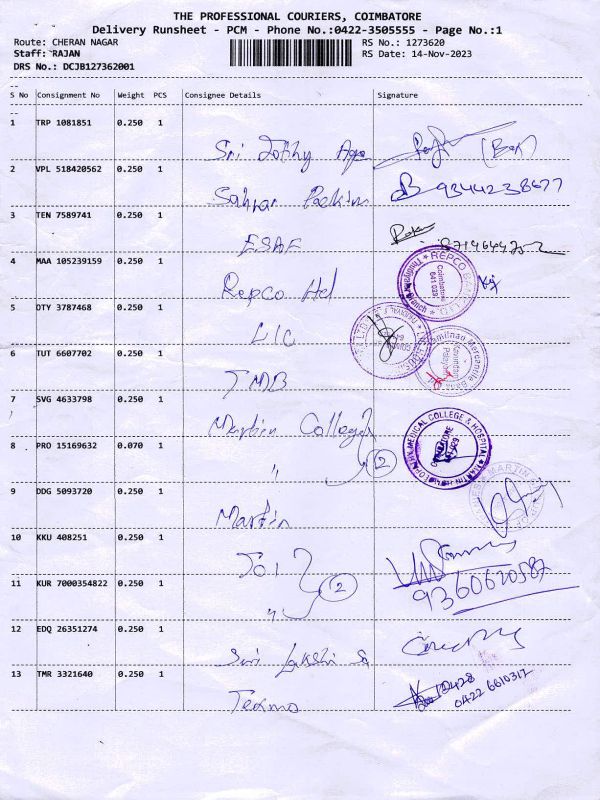 THE PROFESSIONAL COURIERS, COIMBATORE
Delivery Runsheet - PCM - Phone No.:0422-3505555 - Page No.:1
Route: CHERAN NAGAR
RS No.: 1273620
Staff: RAJAN
RS Date: 14-Nov-2023
DRS No.: DCJB127362001
S No Consignment No Weight PCS Consignee Details Signature
1 TRP 1081851 0.250 1
Sri Jothy
2 VPL 518420562 0.250 1
9344238677
3 TEN 7589741 0.250 1
ESAF
4 MAA 105239159 0.250 1
Repco
REPCO BANK
Coimbatore
641 029
Branch
5 DTY 3787468 0.250 1
LIC
6 TUT 6607702 0.250 1
TMB
Tamilnad Mercantile Bank
7 SVG 4633798 0.250 1
Martin College
MEDICAL COLLEGE & HOSPITAL
COIMBATORE
8 PRO 15169632 0.070 1
" (2)
9 DDG 5093720 0.250 1
Martin
MARTIN
10 KKU 408251 0.250 1
9360620587
11 KUR 7000354822 0.250 1
" (2)
12 EDQ 26351274 0.250 1
Sri
13 TMR 3321640 0.250 1
Texmo
0422 6610317